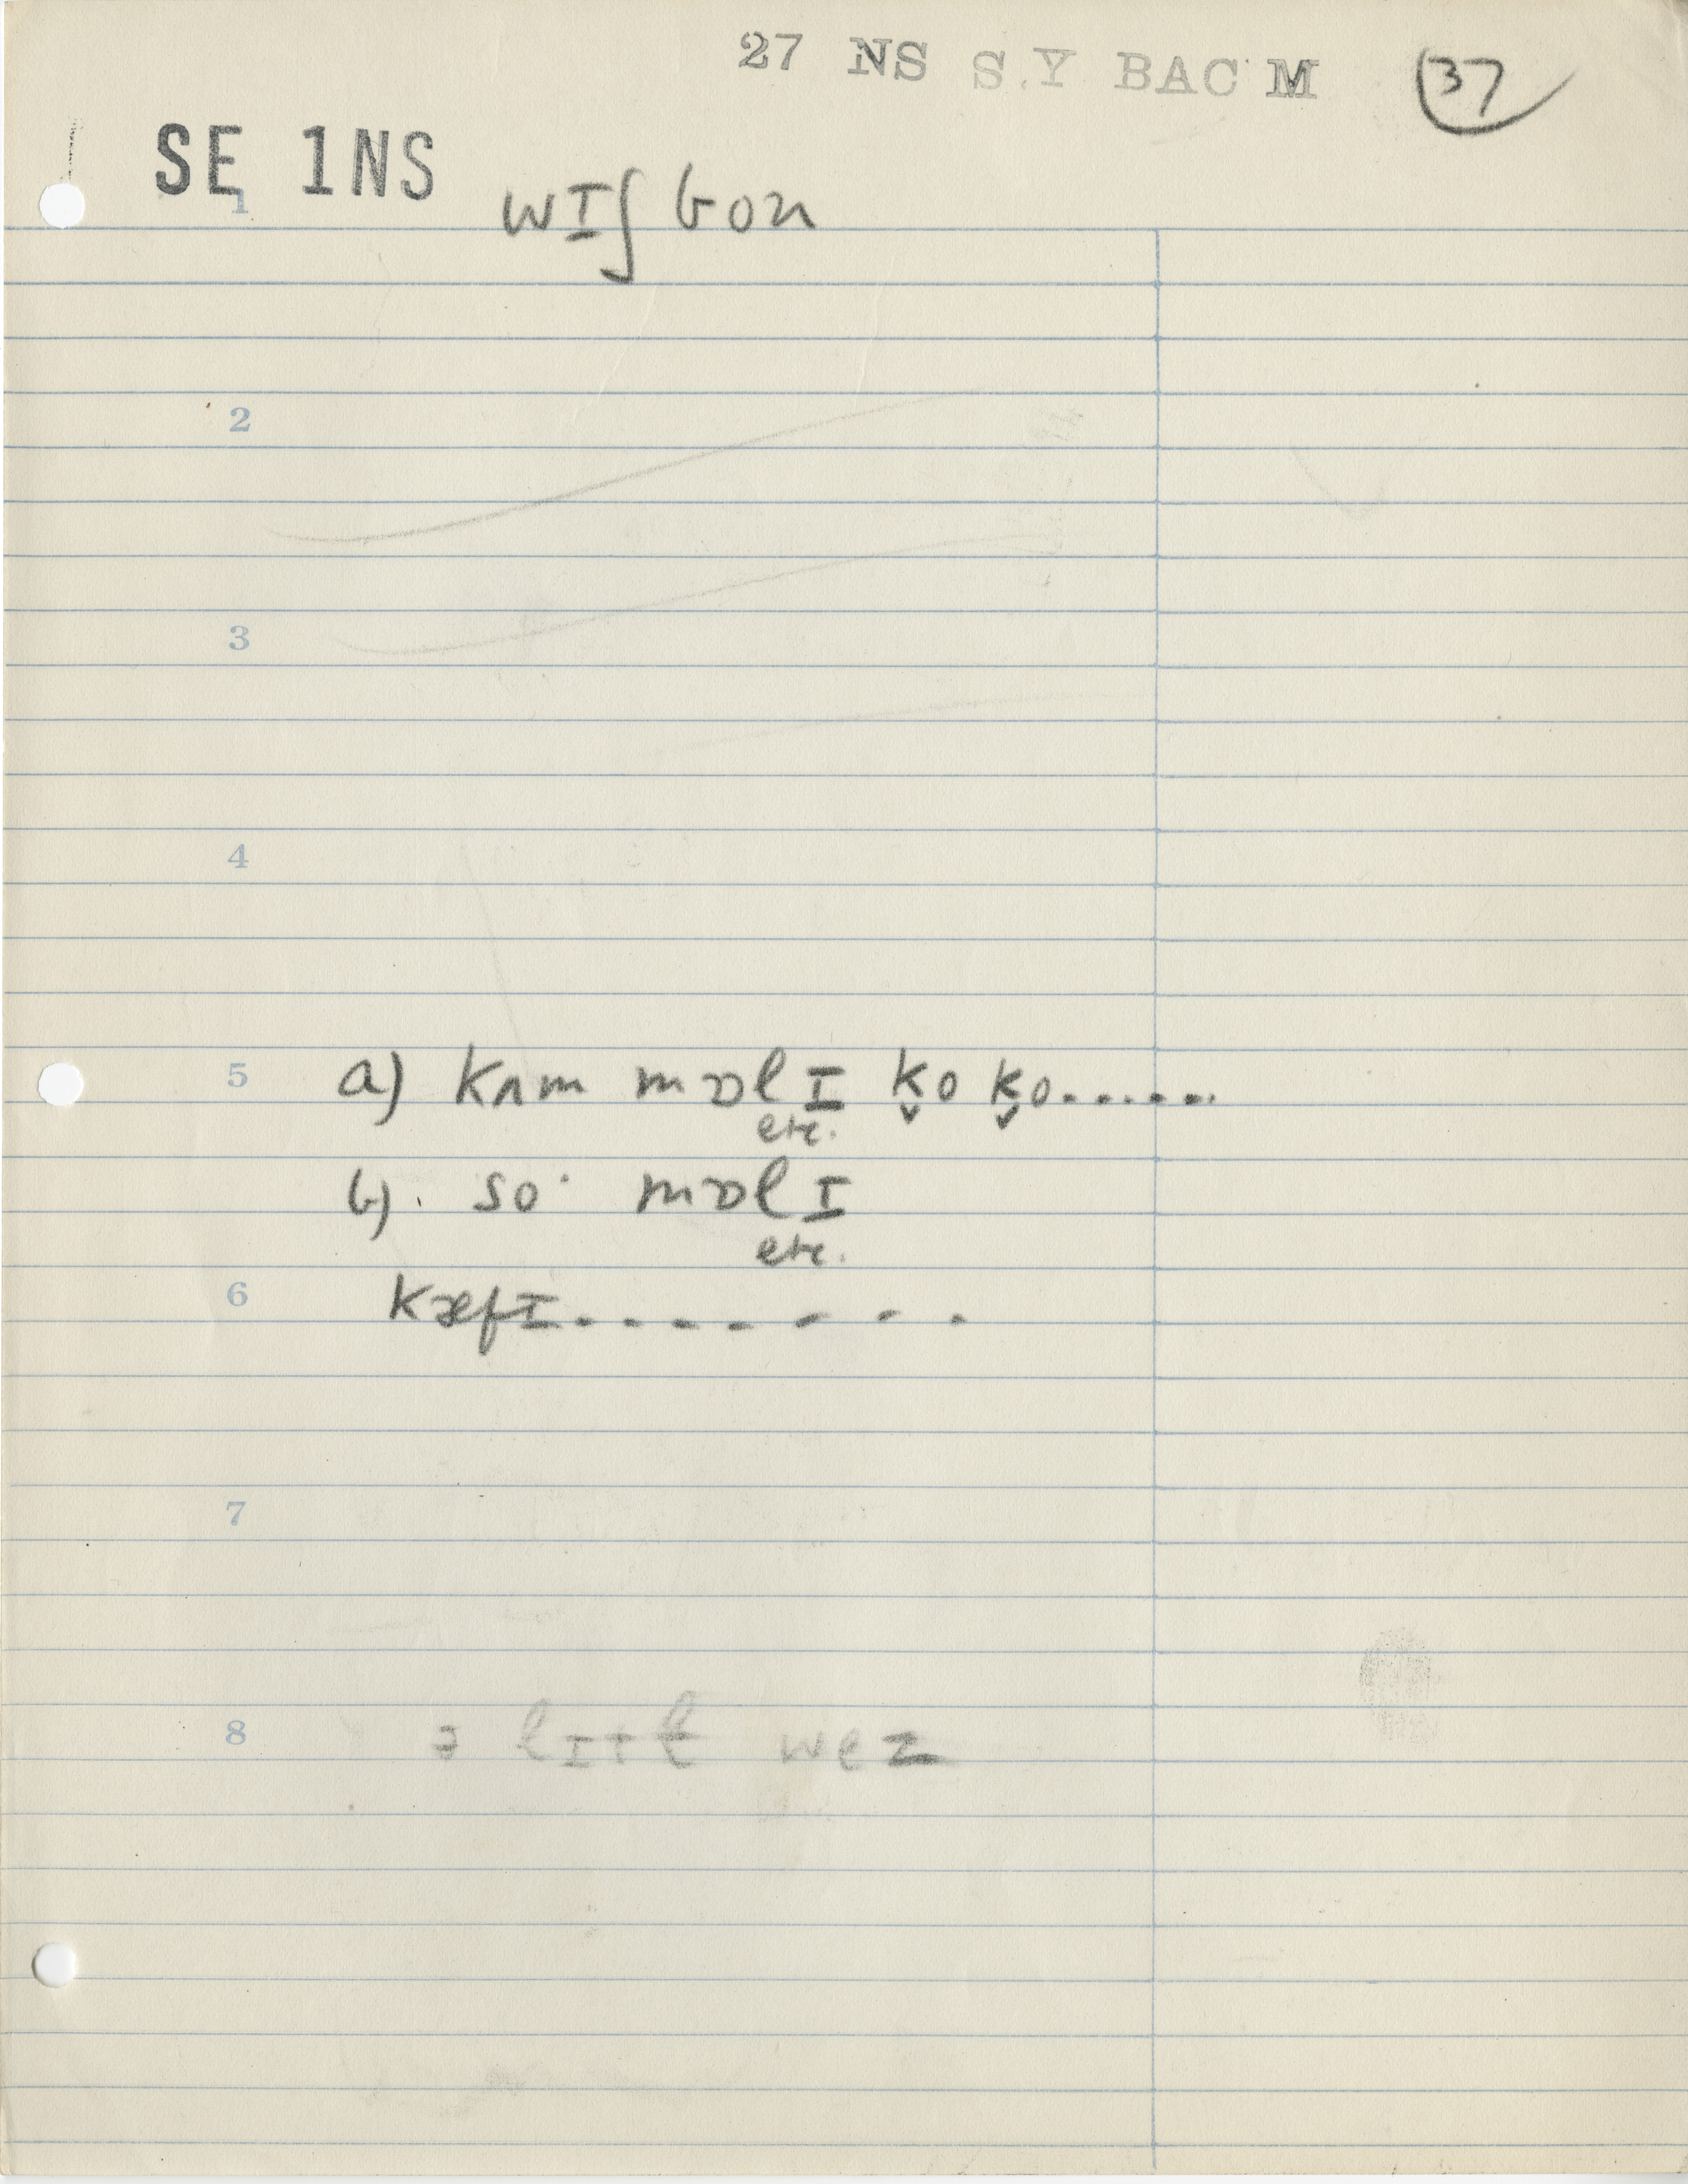 27 NS S.Y BAC M 37
SE 1NS
1 wɪʃ bon
2
3
4
5 a) kʌm mɒlɪ k̬o k̬o......
etc.
b). so· mɒlɪ
etc.
6 kæfɪ........
7
8 ə lɪtɫ wez